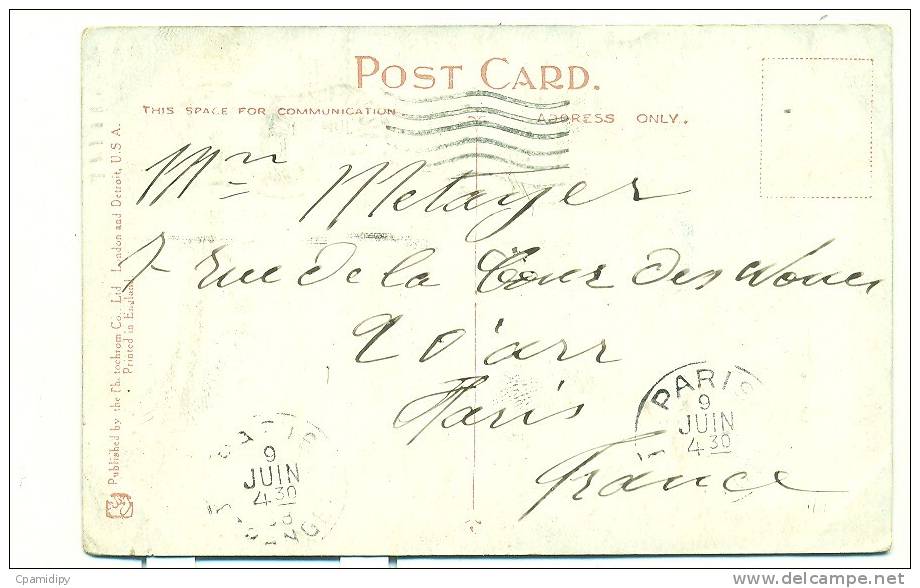 POST CARD.
THIS SPACE FOR COMMUNICATION ADDRESS ONLY.
Mrs Metayer
7 Rue de la Cour des Noues
20 arr
Paris
France
PARIS
9
JUIN
4 30
PARIS
9
JUIN
4 30
08
Published by the Photochrom Co., Ltd., London and Detroit, U.S.A.
Printed in England
Cpamidipy
www.delcampe.net